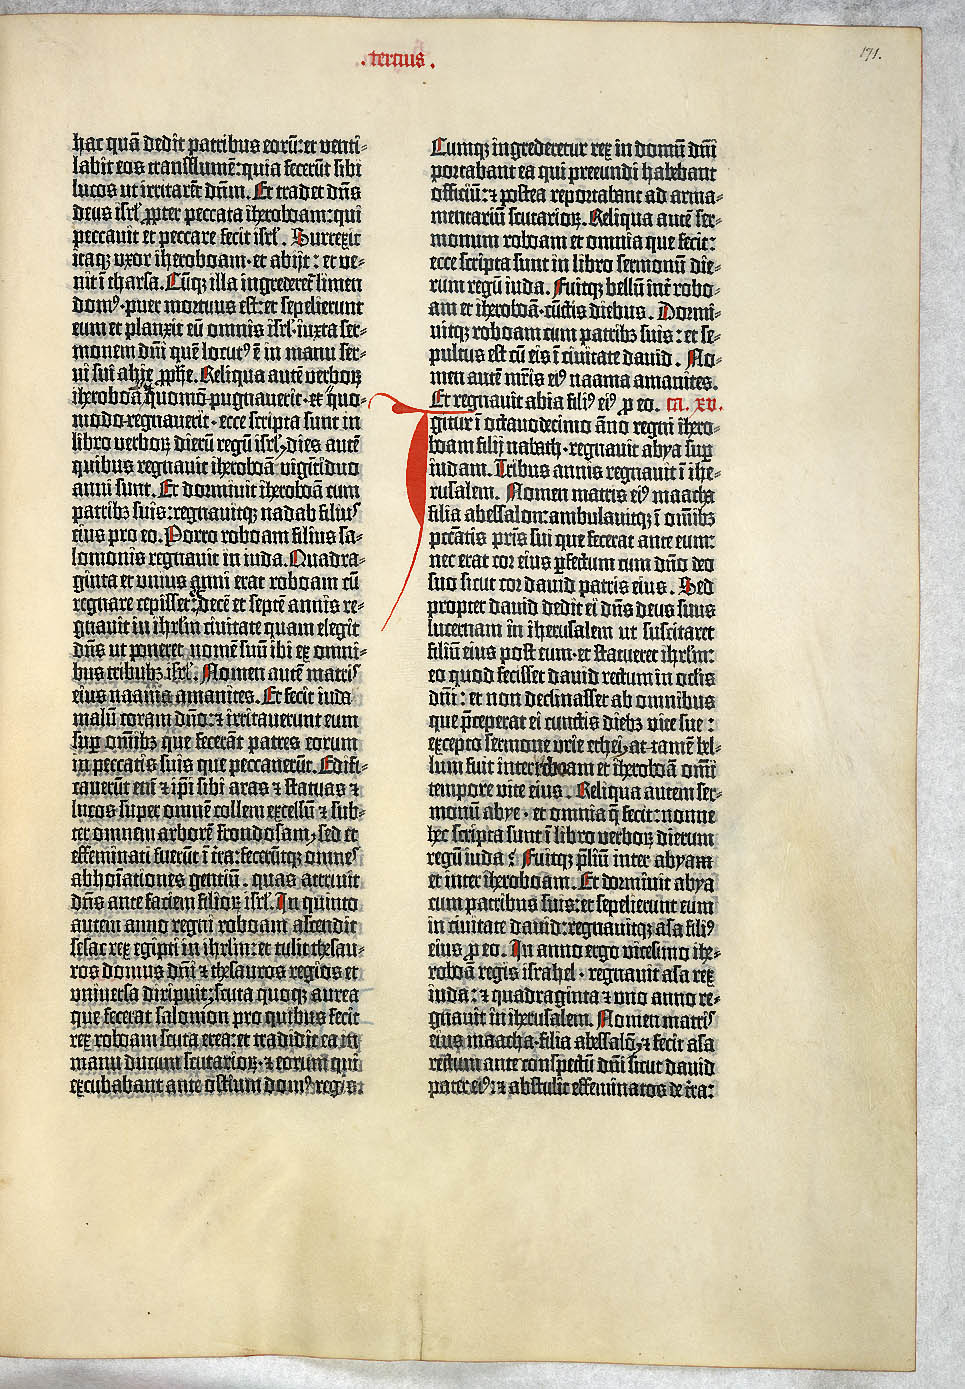 .tercius.
171.
hac quā dedit patribus eorū: et venti-
labit eos trans flumē: quia fecerūt sibi
lucos ut irritarēt dn̄m. Et tradet dn̄s
deus isrl̓ ꝓpter peccata iheroboam: qui
peccavit et peccare fecit isrl̓. Surrexit
itaqꝫ vxor iheroboam· et abijt: et ve-
nit ī tharsa. Cūqꝫ illa ingrederet̉ limen
domꝰ· puer mortuus est: et sepelierunt
eum et planxit eū omnis isrl̓· iuxta ser-
monem dn̄i quē locutꝰ ē in manu ser-
ui sui ahie ꝓphe. Reliqua autē verboꝝ
iheroboā quomō pugnauerit· et quo-
modo regnauerit· ecce scripta sunt in
libro verboꝝ dierū regū isrl̓, dies autē
quibus regnauit iheroboā viginti duo
anni sunt. Et dormiuit iheroboā cum
patribꝫ suis: regnauitqꝫ nadab filiuꝰ
eius pro eo. Porro roboam filius sa-
lomonis regnauit in iuda. Quadra-
ginta et vnius anni erat roboam cū
regnare cepisset: decē et septē annis re-
gnauit in ihrl̓m ciuitate quam elegit
dn̄s ut poneret nomē suū ibi ex omni-
bus tribubꝫ isrl̓. Nomen autē matriꝰ
eius naama amanites. Et fecit iuda
malū coram dn̄o: ⁊ irritauerunt eum
suꝑ om̄ibꝫ que fecerāt patres eorum
in peccatis suis que peccauerūt. Edifi-
cauerūt eni̅ ⁊ ip̄i sibi aras ⁊ statuas ⁊
lucos super omnē collem excelsū ⁊ sub-
ter omnem arborē frondosam, sed et
effeminati fuerūt ī t̓ra: fecerūtqꝫ omneꝰ
abhoīationes gentiū· quas attriuit
dn̄s ante faciem filioꝝ isrl̓. In quinto
autem anno regni roboam ascendit
sesac rex egipti in ihrl̓m: et tulit thesau-
ros domus dn̄i ⁊ thesauros regios et
vniuersa diripuit: scuta quoqꝫ aurea
que fecerat salomon pro quibus fecit
rex roboam scuta erea: et tradidit ea in
manu ducum scutarioꝝ· ⁊ eorum qui
excubabant ante ostium domꝰ regis.
Cumqꝫ ingrederetur rex in domū dn̄i
portabant ea qui preeundi habebant
officiū: ⁊ postea reportabant ad arma-
mentariū scutarioꝝ. Reliqua autē ser-
monum roboam et omnia que fecit:
ecce scripta sunt in libro sermonū die-
rum regū iuda. Fuitqꝫ bellū int̓ robo-
am et iheroboā· cūctis diebus. Dormi-
uitqꝫ roboam cum patribꝫ suis: et se-
pultus est cū eis ī ciuitate dauid. No-
men autē mr̄is eiꝰ naama amanites.
Et regnauit abia filiꝰ eiꝰ ꝓ eo. ca. xv.
Igitur ī octauodecimo āno regni ihero-
boam filij nabath· regnauit abya suꝑ
iudam. Tribus annis regnauit ī ihe-
rusalem. Nomen matris eiꝰ maacha
filia abessalon: ambulauitqꝫ ī om̄ibꝫ
pcc̄atis pr̄is sui que fecerat ante eum:
nec erat cor eius ꝑfectum cum dn̄o deo
suo sicut cor dauid patris eius. Sed
propter dauid dedit ei dn̄s deus suus
lucernam in iherusalem ut suscitaret
filiū eius post eum· et statueret ihrl̓m:
eo quod fecisset dauid rectum in oclis
dn̄i: et non declinasset ab omnibus
que p̄ceperat ei cunctis diebꝫ vite sue:
excepto sermone vrie ethei, at tamē bel-
lum fuit inter roboam et iheroboā om̄i
tempore vite eius. Reliqua autem ser-
monū abye· et omnia q̄ fecit: nonne
hec scripta sunt ī libro verboꝝ dierum
regū iuda: Fuitqꝫ pl̄iū inter abyam
et inter iheroboam. Et dormiuit abya
cum patribus suis: et sepelierunt eum
in ciuitate dauid: regnauitqꝫ asa filiꝰ
eius ꝓ eo. In anno ergo vicesimo ihe-
roboā regis israhel· regnauit asa rex
iuda: ⁊ quadraginta ⁊ vno anno re-
gnauit in iherusalem. Nomen matriꝰ
eius maacha· filia abessalō, ⁊ fecit asa
rectum ante conspectū dn̄i sicut dauid
pater eiꝰ: ⁊ abstulit effeminatos de t̓ra: